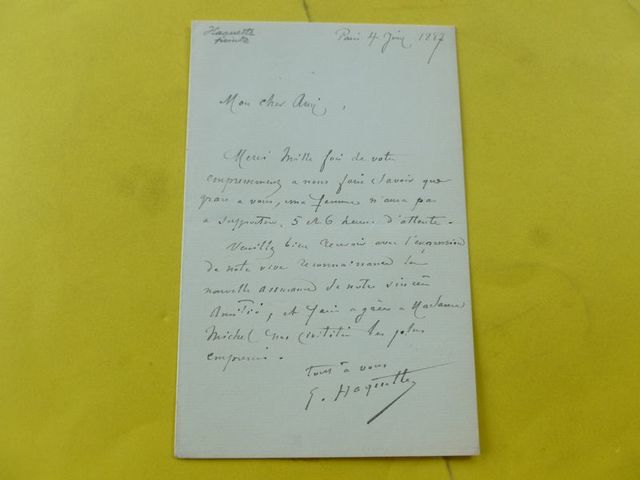 Haquette
peintre
Paris 4 Juin 1887
Mon cher Ami,
Merci Mille fois de votre
empressement a nous faire savoir que
grace a vous, ma femme n'aura pas
a supporter, 5 et 6 heures d'attente.
Veuillez bien recevoir avec l'expression
de notre vive reconnaissance la
nouvelle assurance de notre sincère
Amitié, et faire agréer a Madame
Michel nos civilités les plus
empressées.
Tout à vous
G. Haquette